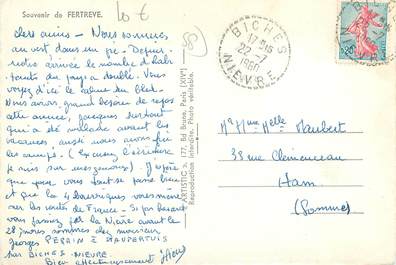 Souvenir de FERTREVE.
10 €
58
Chers amis - Nous sommes
au vert dans un pré - Depuis
notre arrivée le nombre d'habi-
tants du pays a doublé. Vous
voyez d'ici le calme du bled.
Nous avions grand besoin de repos
cette année, Jacques surtout
qui a été malade avant les
vacances aussi nous avons fui
les campings! (Excusez l'écriture
je suis sur mes genoux). J'espère
que pour vous tout se passe bien
et que la 4 bourriques vous mène
sur les routes de France - Si par hasard
vous passez par la Nièvre avant le
28 nous sommes chez monsieur
Georges PERRIN à MAUPERTUIS
par BICHES - NIEVRE.
Bien affectueusement
ARTISTIC a. 177, Ed Bruno, Paris (XIVe)
Reproduction interdite. Photo véritable.
BICHES
17 H15
22 -7
1960
NIEVRE
Mr Mme Melle Maubert
33 rue Clémenceau
Ham
(Somme)